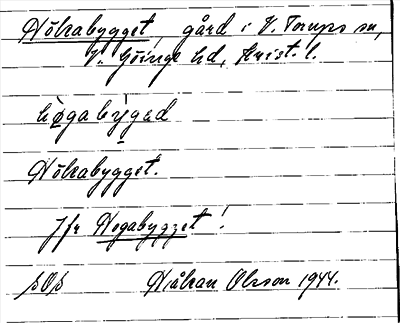 Hökabygget, gård i V. Torups sn,
V. Göinge hd, Krist. l.
högabyggad
Hökabygget.
Jfr Hogabygget!
Håkan Olsson 1944.